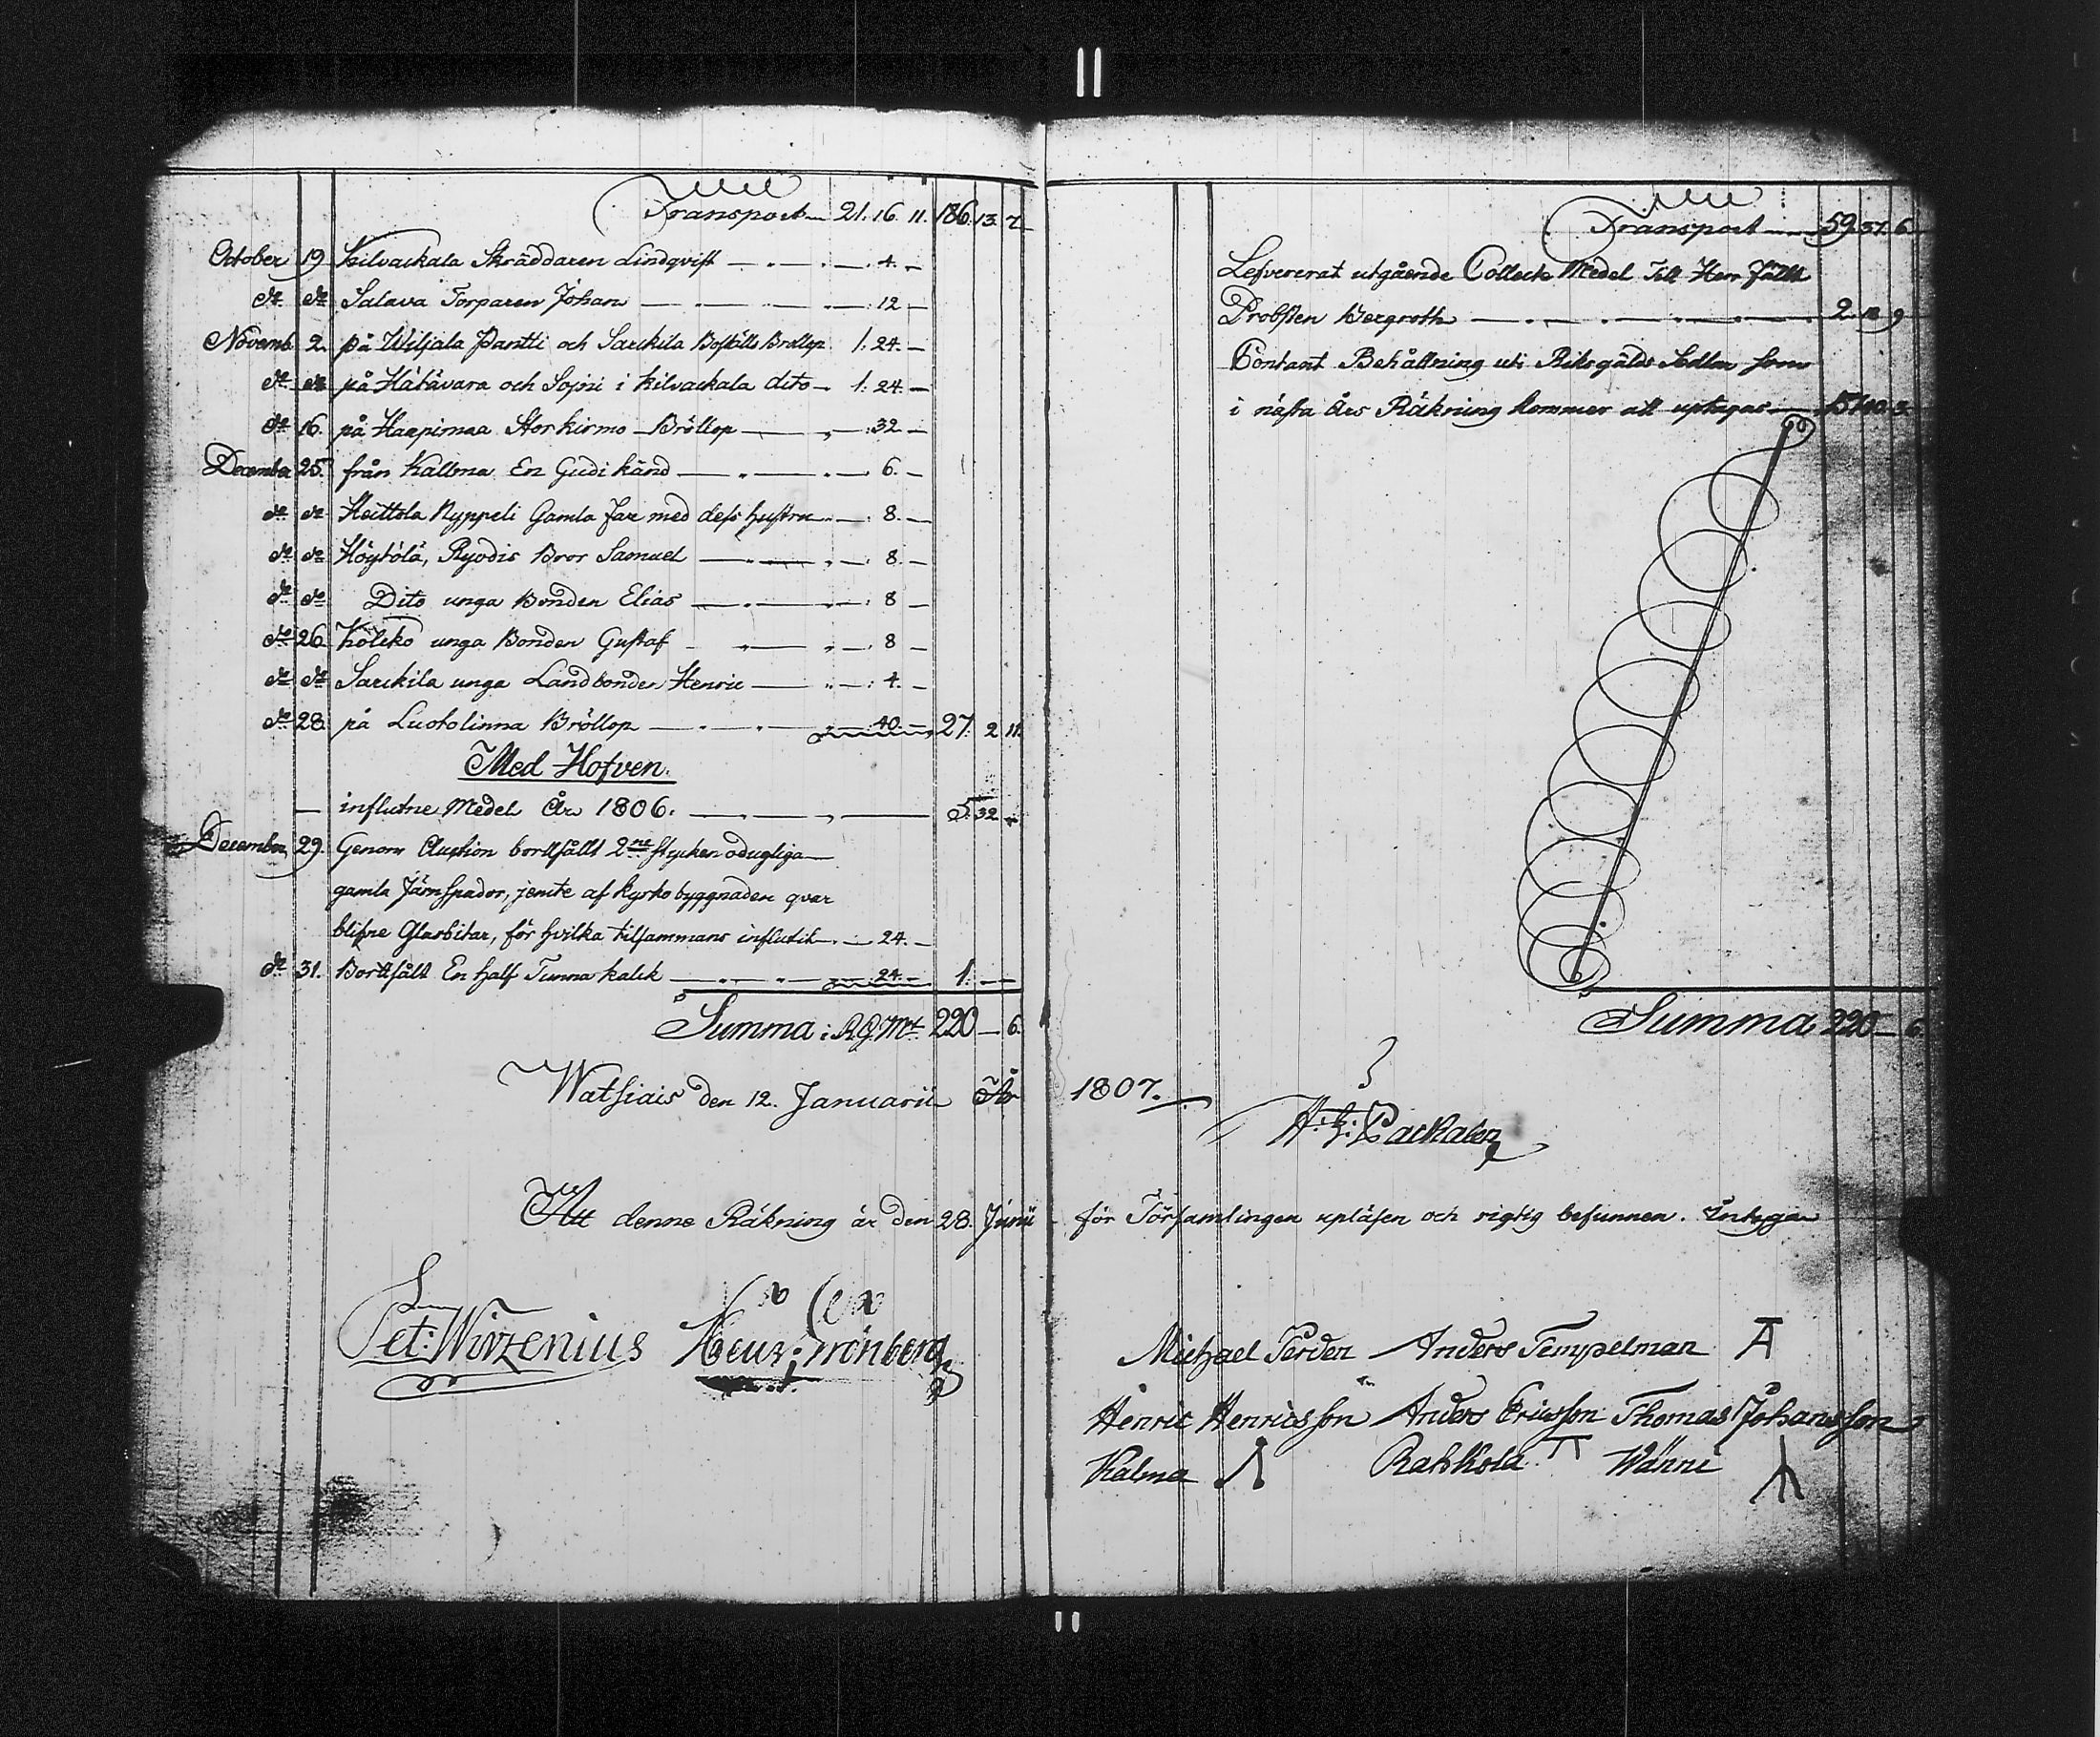 Transport 21. 16. 11. 186. 13. 2
October 19 Kilvackala Skräddaren Lindqvist 4. —
do do Salava Torparen Johan 12 —
Novemb 2. på Wiljala Pantti och Sarckila Boställs Bröllop 1. 24. —
do do på Hätävara och Sopii i Kilvackala dito 1. 24. —
do 16. på Haapimaa Storkirmo Bröllop 32 —
December 25. från Kallma En Gudi känd 6. —
do do Heittola Nyppeli Gamla Far med dess hustru 8. —
do do Höytölä, Ryödis Bror Samuel 8. —
do do Dito unga Bonden Elias 8 —
do 26 Kölckö unga Bonden Gustaf 8 —
do do Sarckila unga Landbonden Henric 4. —
do 28. på Luotolinna Bröllop 40. — 27. 2 11.
Med Hofven.
— influtne Medel År 1806. 5. 32
December 29. Genom Auction bortsåldt 2ne stycken odugliga
gamla Järnspador, jemte af Kyrko byggnaden qvar
blifne Glasbitar, för hvilka tilsammans influtit 24. —
do 31. Bortsåldt En half Tunna kalck 24. — 1. —
Summa i RGMt 220 — 6.
Watsiais den 12. Januarii År
Att denne Räkning är den 28. Junii
Pet: Wirzenius
Transport 59. 37. 6
Lefvererat utgående Collect Medel Till Herr Fällt
Probsten Bergroth 2. 12 9
Contant Behållning uti Riksgälds Sedlar som
i nästa Års Räkning kommer att uptagas
Summa 220 — 6.
1807.
för Församlingen upläsen och rigtig befunnen. Intyga
Michael Perden Anders Tempelman
Henric Henricsson Anders Ericsson Thomas Johansson
Kalma Rahkola Wänni